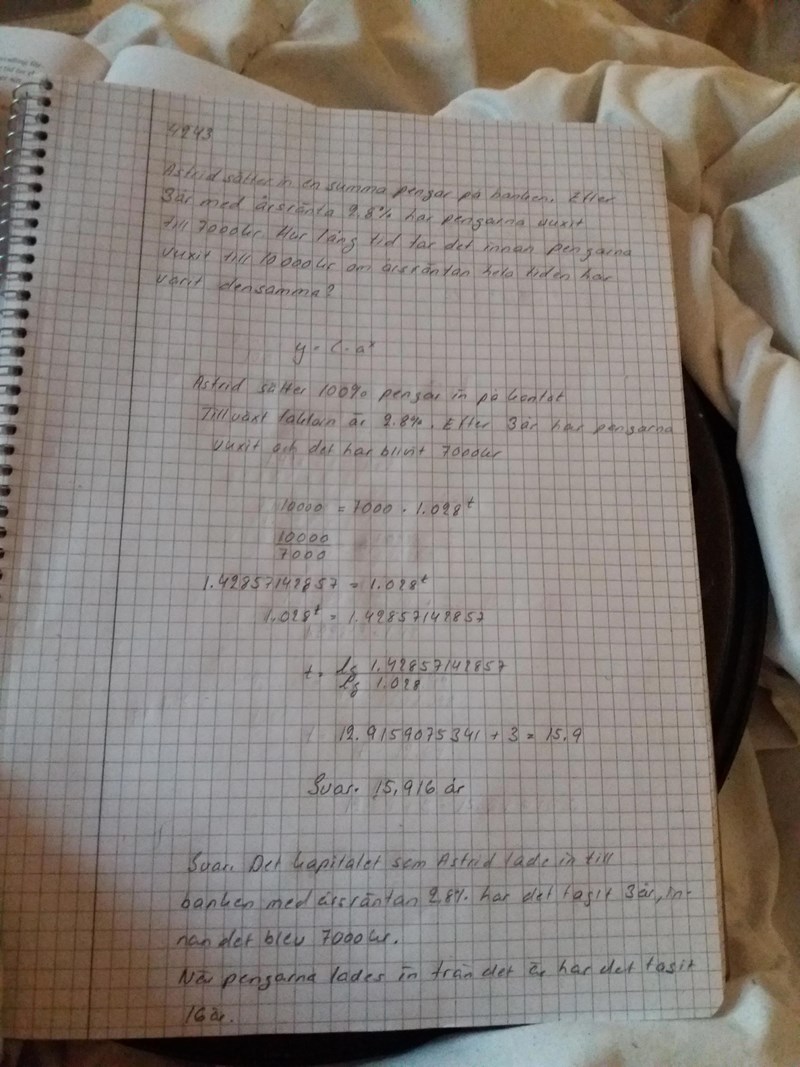 4243
Astrid sätter in en summa pengar på banken. Efter
3år med årsränta 2.8% har pengarna vuxit
till 7000kr. Hur lång tid tar det innan pengarna
vuxit till 10000kr om årsräntan hela tiden har
varit densamma?
y = C · aˣ
Astrid sätter 100% pengar in på kontot
Tillväxt faktorn är 2.8%. Efter 3år har pengarna
vuxit och det har blivit 7000kr
10000 = 7000 · 1.028ᵗ
10000
7000
1.42857142857 = 1.028ᵗ
1.028ᵗ = 1.42857142857
t = lg 1.42857142857
lg 1.028
12.9159075341 + 3 = 15.9
Svar. 15,916 år
Svar. Det kapitalet som Astrid lade in till
banken med årsräntan 2,8% har det tagit 3år, in-
nan det blev 7000kr.
När pengarna lades in från det år har det tagit
16år.